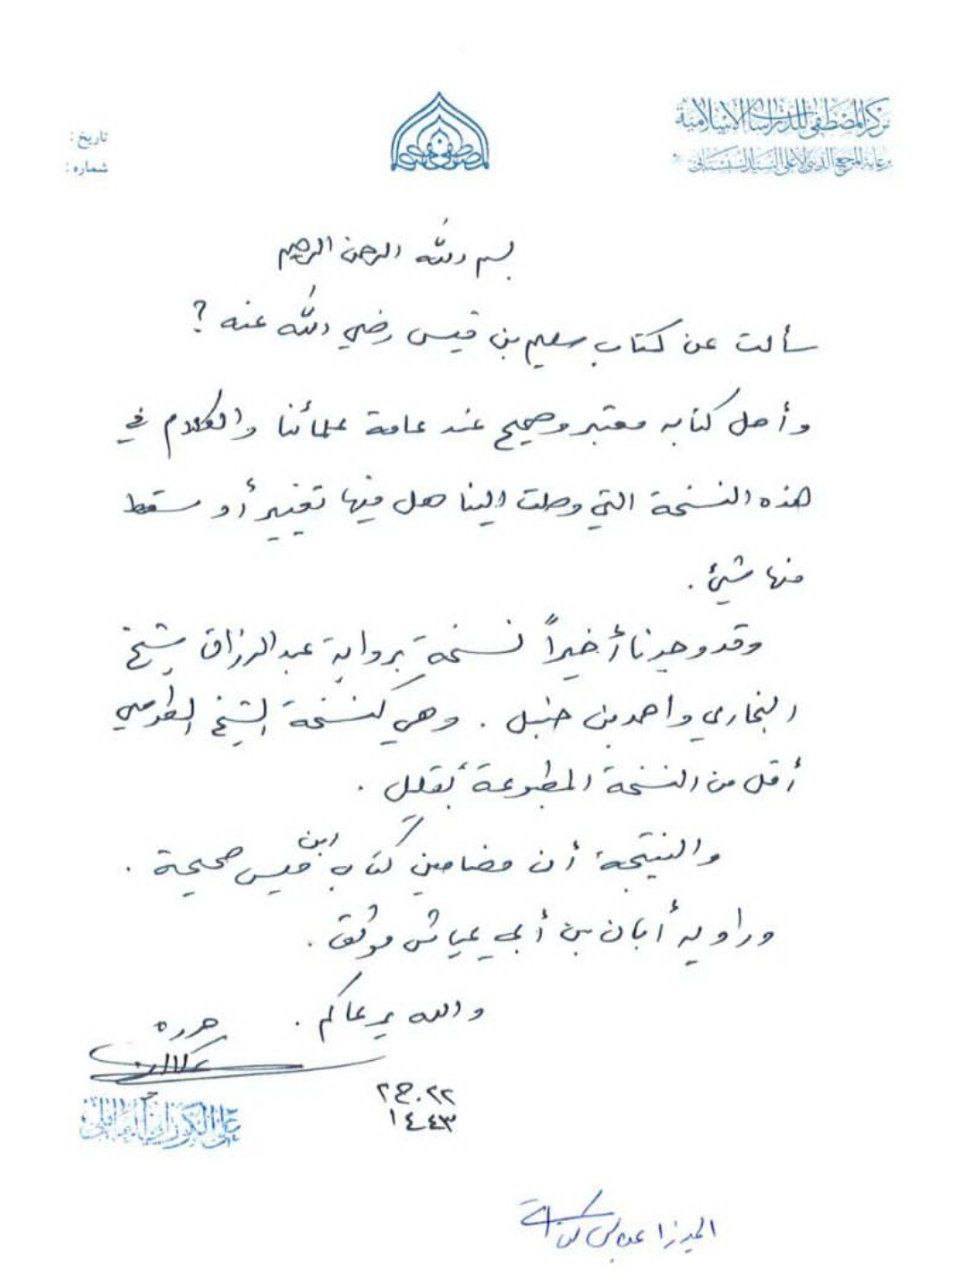 مركز المصطفى للدراسات الإسلامية
برعاية المرجع الديني الأعلى السيد السيستاني
تاريخ :
شماره :
بسم الله الرحمن الرحيم
سألت عن كتاب سليم بن قيس رضي الله عنه ?
وأصل كتابه معتبر وصحيح عند عامة علمائنا والكلام في
هذه النسخة التي وصلت الينا هل فيها تغيير أو سقط
منها شيئ .
وقد وجدنا أخيراً نسخة برواية عبد الرزاق شيخ
البخاري واحمد بن حنبل . وهي كنسخة الشيخ الطوسي
أقل من النسخة المطبوعة بقليل .
والنتيجة أن مضامين كتاب ابن قيس صحيحة .
وراويه أبان بن أبي عياش موثق .
والله يرعاكم .
حرره
علي الكوراني العاملي
٢٢ . ج٢
١٤٤٣
الميرزا عباس